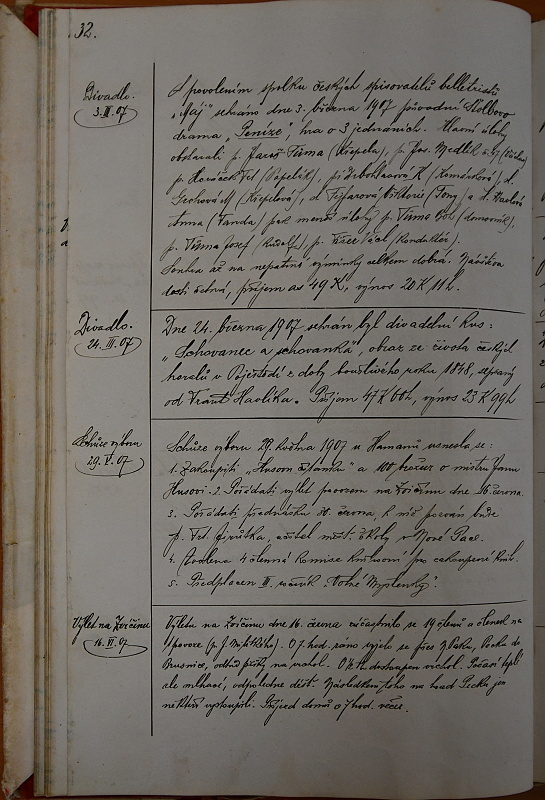 32.
Divadlo.
3. III. 07
S povolením spolku českých spisovatelů belletristů
"Máj" sehráno dne 3. března 1907 původní Štolbovo
drama "Peníze", hra o 3 jednáních. Hlavní úlohy
obstarali p. Jaroš Tůma (Křepela), p. Jos. Medlík
p. Horáček Frt. p. A. d.
Grohova M (Křepelová), sl. Fejfarová Viktorie (Tony) a sl. Havlová
Anna (Fanda) pak menší úlohy p. Tůma Boh. (domovník),
p. Tůma Josef (Rudolf), p. Václ. (Konduktér).
Souhra až na nepatrné výminky celkem dobrá. Návštěva
dosti četná, příjem as 49 K, výnos 20 K 11 h.
Divadlo.
24. III. 07
Dne 24. března 1907 sehrán byl divadelní kus:
"Schovanec a schovanka", obraz ze života českých
horalů v Pojestědí z doby bouřlivého roku 1848, sepsaný
od Frant. Havlíka. Příjem 47 K 60 h, výnos 23 K 99 h
Schůze výboru
29. V. 07
Schůze výboru 29. května 1907 u Hamanů usnesla se:
1. Zakoupiti "Husovu čítanku" a 100 brožur o mistru Janu
Husovi. 2. Pořádati výlet povozem na Zvičinu dne 16. června.
3. Pořádati přednášku 30. června, k níž pozván bude
p. Frt. Jirutka, učitel měšť. školy v Nové Pace.
4. Zvolena 4 členná komise knihovní pro zakoupení knih.
5. Předplacen II. ročník "Volné Myšlenky".
Výlet na Zvičinu
16. VI. 07
Výletu na Zvičinu dne 16. června zúčastnilo se 19 členů a členek na
povoze (p. J. Mikského). O 7 hod. ráno vyjelo se přes N. Paku, Pecku do
Brusnice, odtud pěšky na vrchol. O dostoupen vrchol. Počasí teplé
ale mlhavé, odpoledne déšť. Následkem toho na hrad Pecku jen
někteří vystoupili. Příjezd domů o 7 hod. večer.